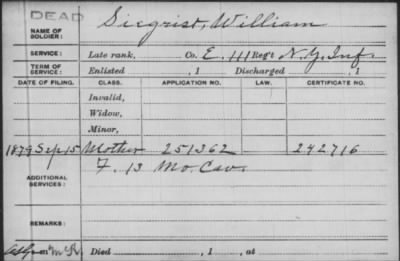 DEAD
NAME OF SOLDIER: Siegrist, William
SERVICE: Late rank, Co. E, 111 Reg't N.Y. Inf.
TERM OF SERVICE: Enlisted , 1 Discharged , 1
DATE OF FILING. CLASS. APPLICATION NO. LAW. CERTIFICATE NO.
Invalid,
Widow,
Minor,
1879 Sep 15 Mother 251362 242716
ADDITIONAL SERVICES: F. 13 Mo. Cav.
REMARKS:
Died , 1 , at